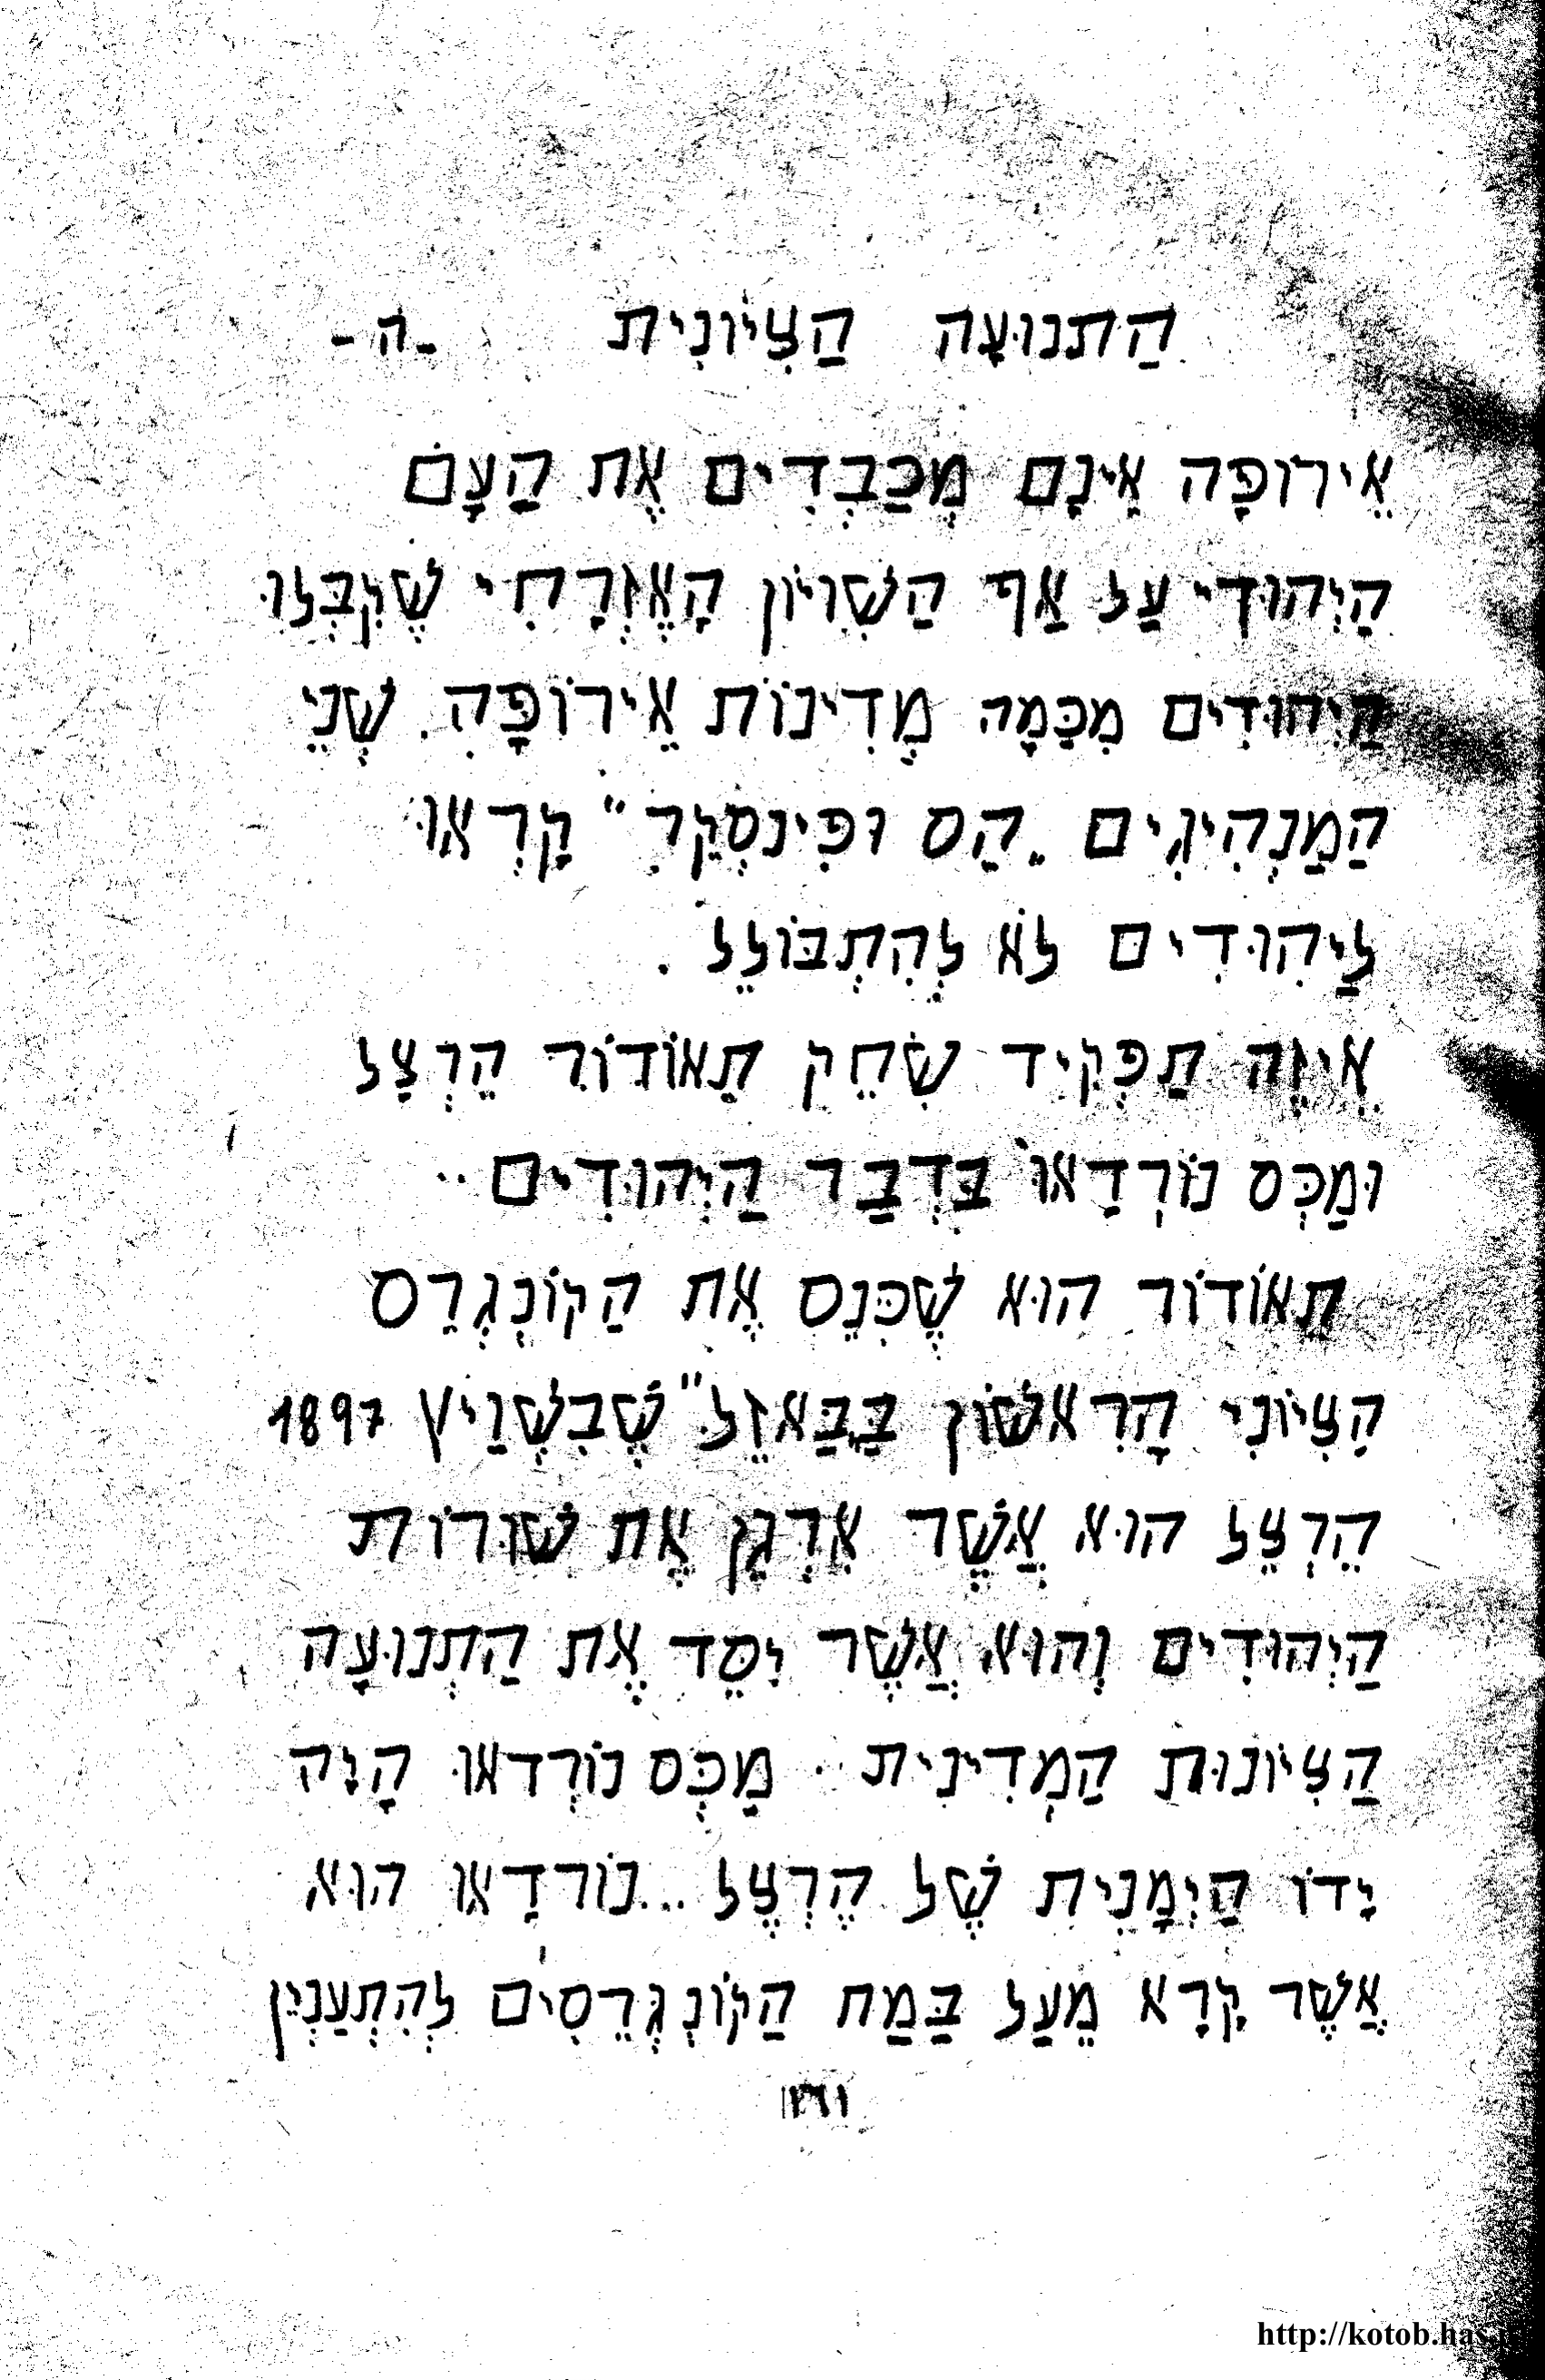 הַתנוּעָה הַצִיֹונִית -ה-
אֵירוֹפָה אֵינָם מְכַבְדִים אֶת הַעָם
הַיְהוּדִי עַל אַף הַשִׁויֹון הָאֶזְרָחִי שֶׁקִבְּלוּ
הַיִהוּדִים מִכַּמָה מְדִינוֹת אֵירוֹפָּה. שְׁנֵי
הַמַנְהִיגִים „הַס וּפִינסְקֵר" קָרְאוּ
לַיִהוּדִים לֹא לְהִתְבּוֹלֵל .
אֵיזֶה תַפְקִיד שִׂחֵק תֵאוֹדוֹר הֵרְצַל
וּמַכְּס נוֹרְדַאוּ בִּדְבַר הַיְהוּדִים..
תֵאוֹדוֹר הוּא שֶׁכִּנֵס אֶת הַקוֹנְגְרֵס
הַצִיֹונִי הָרִאשׁוֹן בַּ„בַּאזֵל" שֶׁבִשְׁוַיץ 1897
הֵרְצֵל הוּא אֲשֶׁר אִרְגֵן אֶת שׁוּרוֹת
הַיְהוּדִים וְהוּא אֲשֶׁר יִסֵד אֶת הַתְנוּעָה
הַצִיֹונוּת הַמְדִינִית.. מַכְּס נוֹרְדאוּ הָיָה
יָדוֹ הַיְמָנִית שֶׁל הֶרְצֶל...נוֹרדַאוּ הוּא
אֲשֶׁר קָרָא מֵעַל בַּמַת הַקוֹנְגְרֵסִים לְהִתְעַנְיֵן